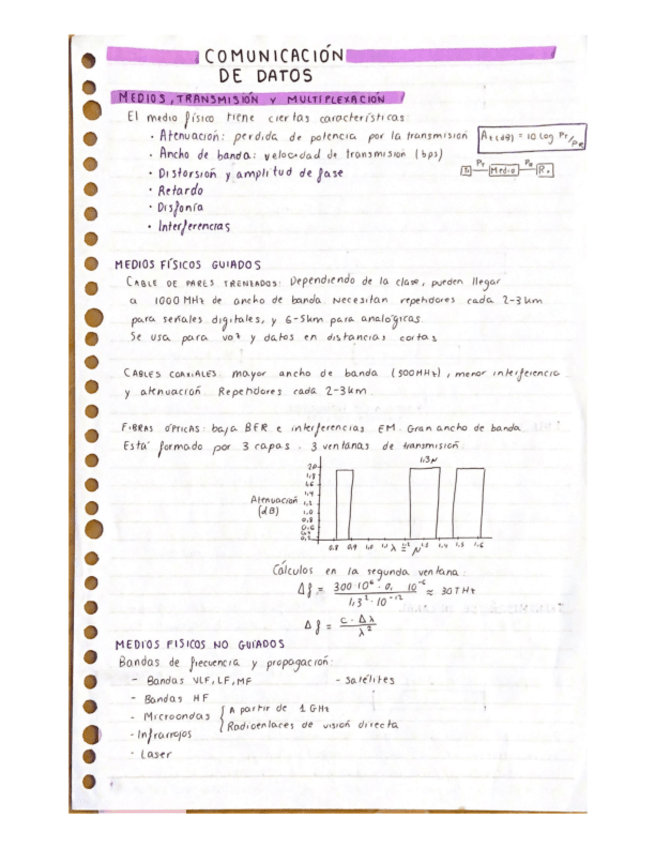 COMUNICACIÓN
DE DATOS
MEDIOS, TRANSMISIÓN Y MULTIPLEXACIÓN
El medio físico tiene ciertas características:
· Atenuación: perdida de potencia por la transmisión
At(dB) = 10 log PT/PR
· Ancho de banda: velocidad de transmisión (bps)
PT PR
Medio
· Distorsión y amplitud de fase
· Retardo
· Disfonía
· Interferencias
MEDIOS FÍSICOS GUIADOS
CABLE DE PARES TRENZADOS: Dependiendo de la clase, pueden llegar
a 1000 MHz de ancho de banda. Necesitan repetidores cada 2-3 km
para señales digitales, y 6-5km para analógicas.
Se usa para voz y datos en distancias cortas
CABLES COAXIALES: mayor ancho de banda (500MHz), menor interferencia
y atenuación. Repetidores cada 2-3km.
FIBRAS ÓPTICAS: baja BER e interferencias EM. Gran ancho de banda
Está formado por 3 capas. 3 ventanas de transmisión.
1,3μ
Atenuación
(dB)
2.0
1,8
1,6
1,4
1,2
1,0
0,8
0,6
0,8 0,9 1,0 1,1 λ 1,2 μ 1,3 1,4 1,5 1,6
Cálculos en la segunda ventana:
Δf = 300·10⁶ · 0, 10⁻⁶ / 1,3² · 10⁻¹² ≈ 30THz
Δf = c · Δλ / λ²
MEDIOS FISICOS NO GUIADOS
Bandas de frecuencia y propagación:
- Bandas VLF, LF, MF - Satélites
- Bandas HF
- Microondas { A partir de 1GHz
Radioenlaces de visión directa
- Infrarrojos
- Laser